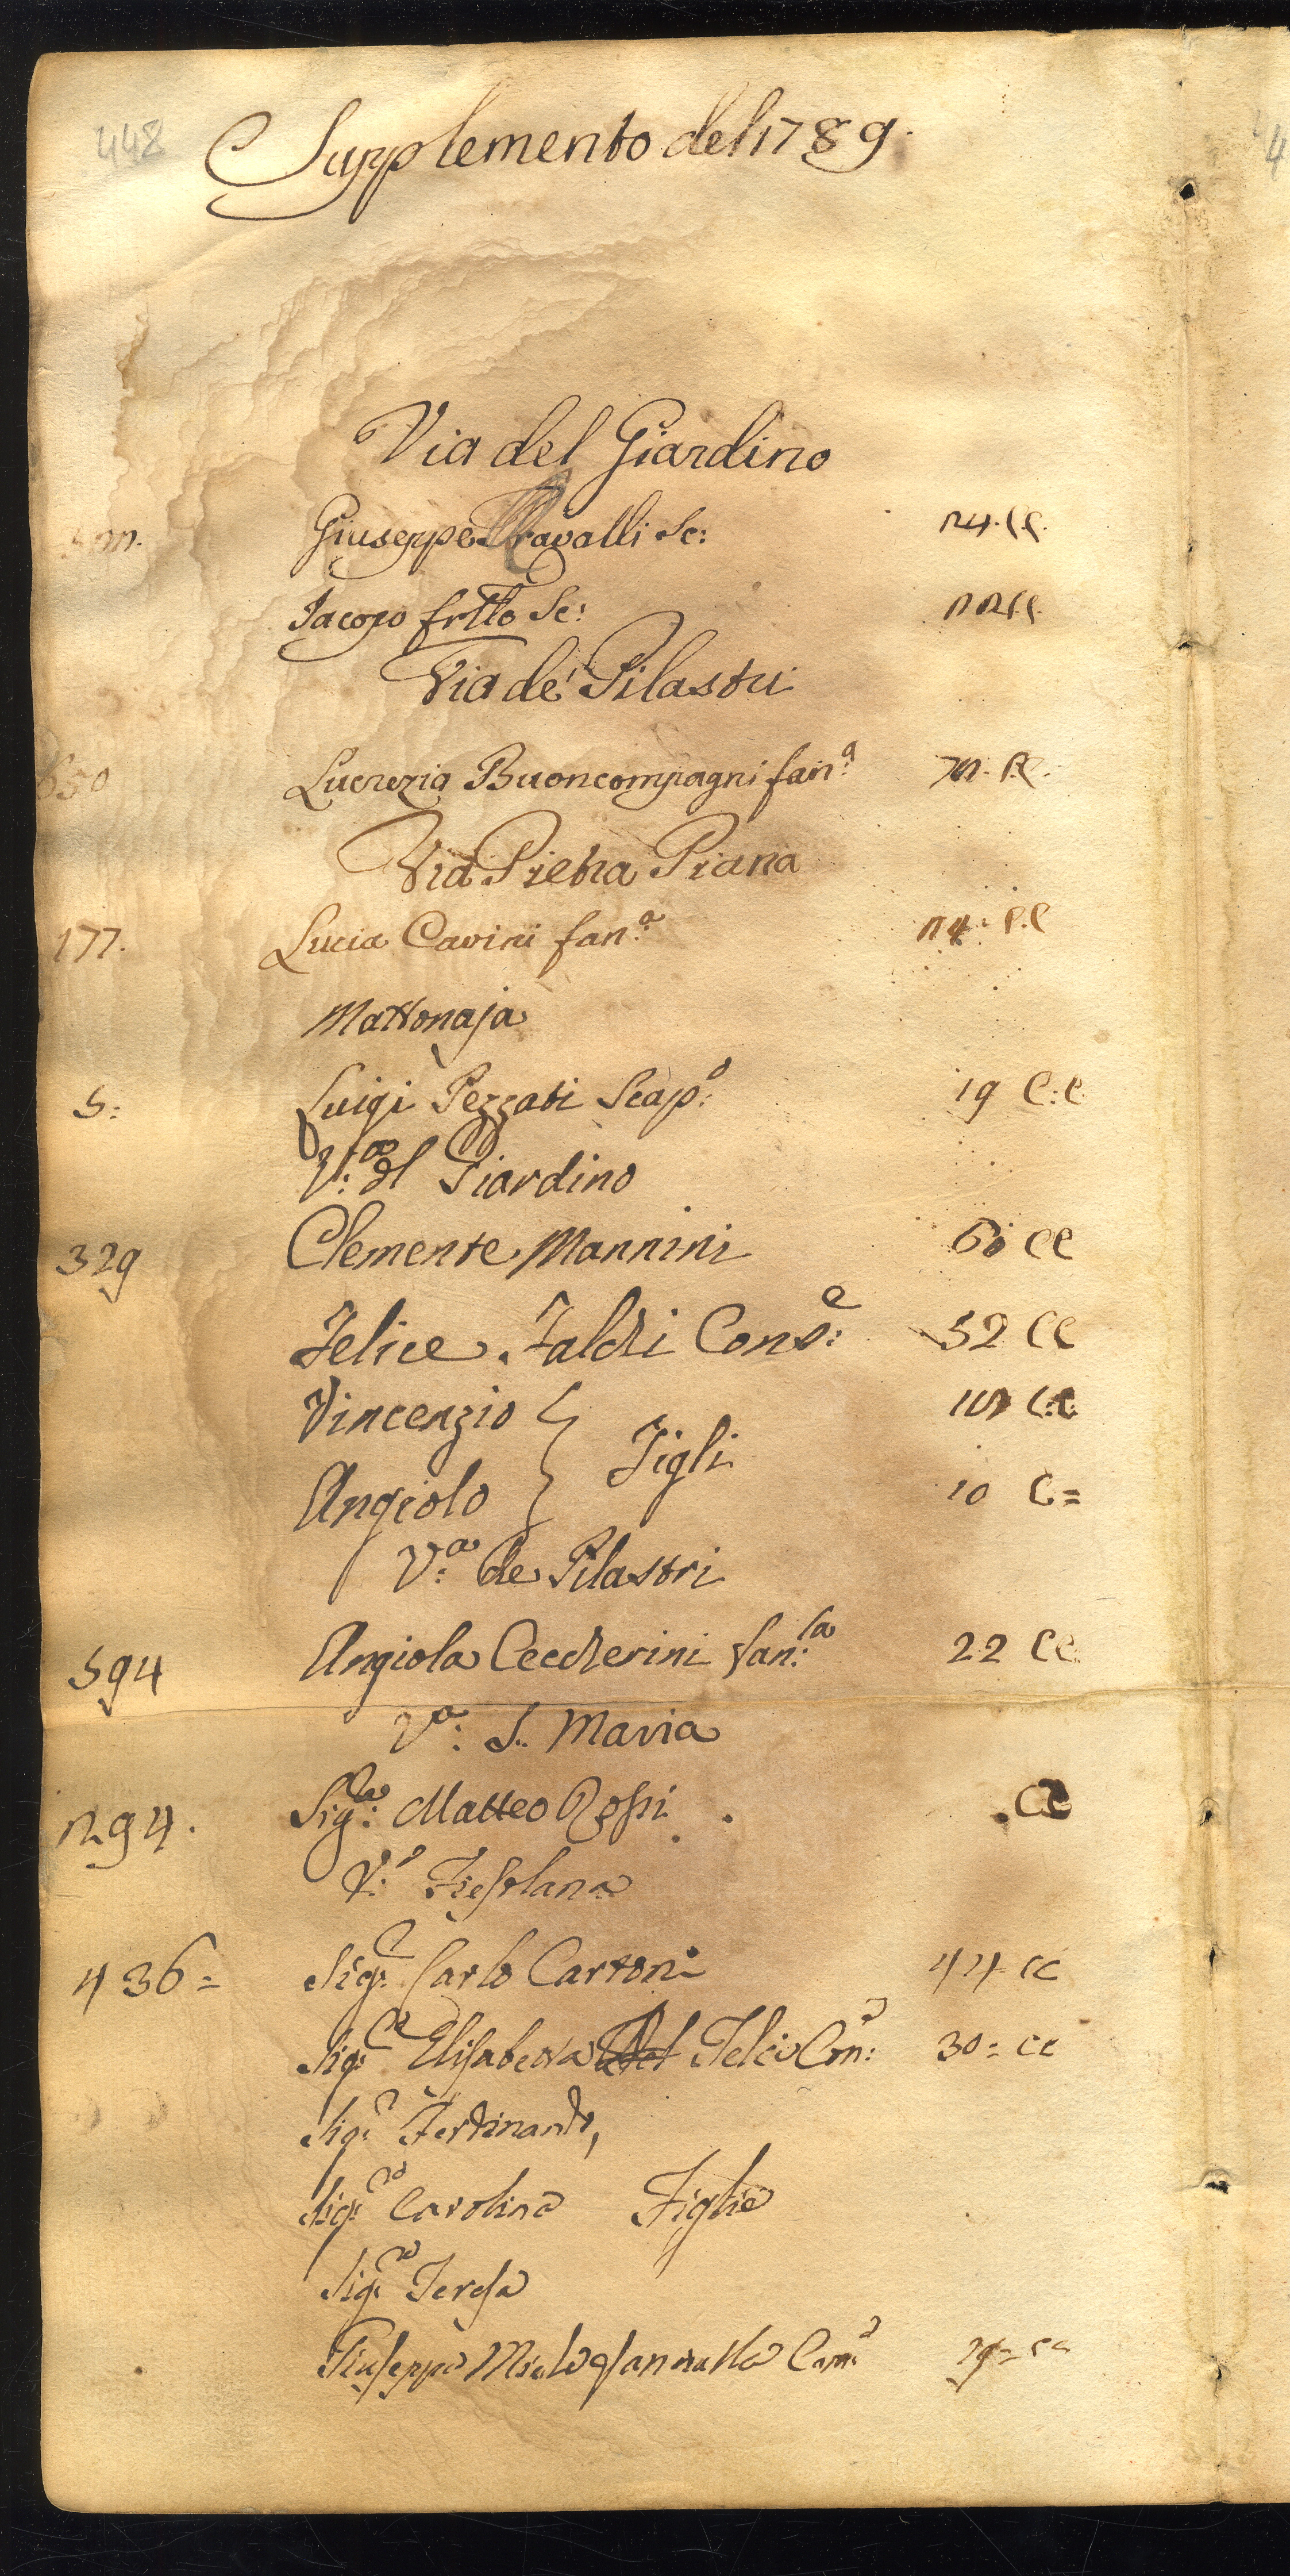 448
Supplemento del 1789.
Via del Giardino
Giuseppe Ravalli Sc: 24. C.C.
Jacopo frtlo Sc: 22 C.C.
Via de' Pilastri
650 Lucrezia Buoncompagni fan:a C.C.
Via Pietra Piana
177. Lucia Cavini fan:a 24. C.C
Mattonaja
5: Luigi Pezzati Scap:o 19 C:C
V:a dl Giardino
329 Clemente Mannini 60 CC
Felice Falchi Cons:e 52 CC
Vincenzio C.C.
Figli
Angiolo 10 C=
V:a de Pilastri
594 Angiola Ceccherini fan:la 22 CC
V:a S. Maria
294. Sig:re Matteo Rossi CC
V:a Fiesolana
436= Sig:r Carlo Cartoni 44 CC
Sig:ra Elisabetta Con:a 30= CC
Sig:r Ferdinando,
Sig:ra Carolina Figlie
Sig:ra Teresa
Giuseppa Con:a CC